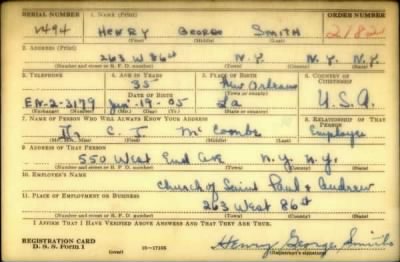 SERIAL NUMBER 1. NAME (Print) ORDER NUMBER
1494 HENRY GEORGE SMITH 2182
(First) (Middle) (Last)
2. ADDRESS (Print)
263 W 86th N.Y. N.Y. N.Y.
(Number and street or R. F. D. number) (Town) (County) (State)
3. TELEPHONE 4. AGE IN YEARS 5. PLACE OF BIRTH 6. COUNTRY OF CITIZENSHIP
35 New Orleans
DATE OF BIRTH (Town or county)
EN-2-3179 Jan-19-05 La U.S.A.
(Exchange) (Number) (Mo.) (Day) (Yr.) (State or country)
7. NAME OF PERSON WHO WILL ALWAYS KNOW YOUR ADDRESS 8. RELATIONSHIP OF THAT PERSON
C. J. McCombs Employee
(Mr., Mrs., Miss) (First) (Middle) (Last)
9. ADDRESS OF THAT PERSON
550 West End Ave N.Y. N.Y.
(Number and street or R. F. D. number) (Town) (County) (State)
10. EMPLOYER'S NAME
Church of Saint Paul & Andrew
11. PLACE OF EMPLOYMENT OR BUSINESS
263 West 86th
(Number and street or R. F. D. number) (Town) (County) (State)
I AFFIRM THAT I HAVE VERIFIED ABOVE ANSWERS AND THAT THEY ARE TRUE.
REGISTRATION CARD
D. S. S. Form 1 (over) 16-17105 Henry George Smith
(Registrant's signature)